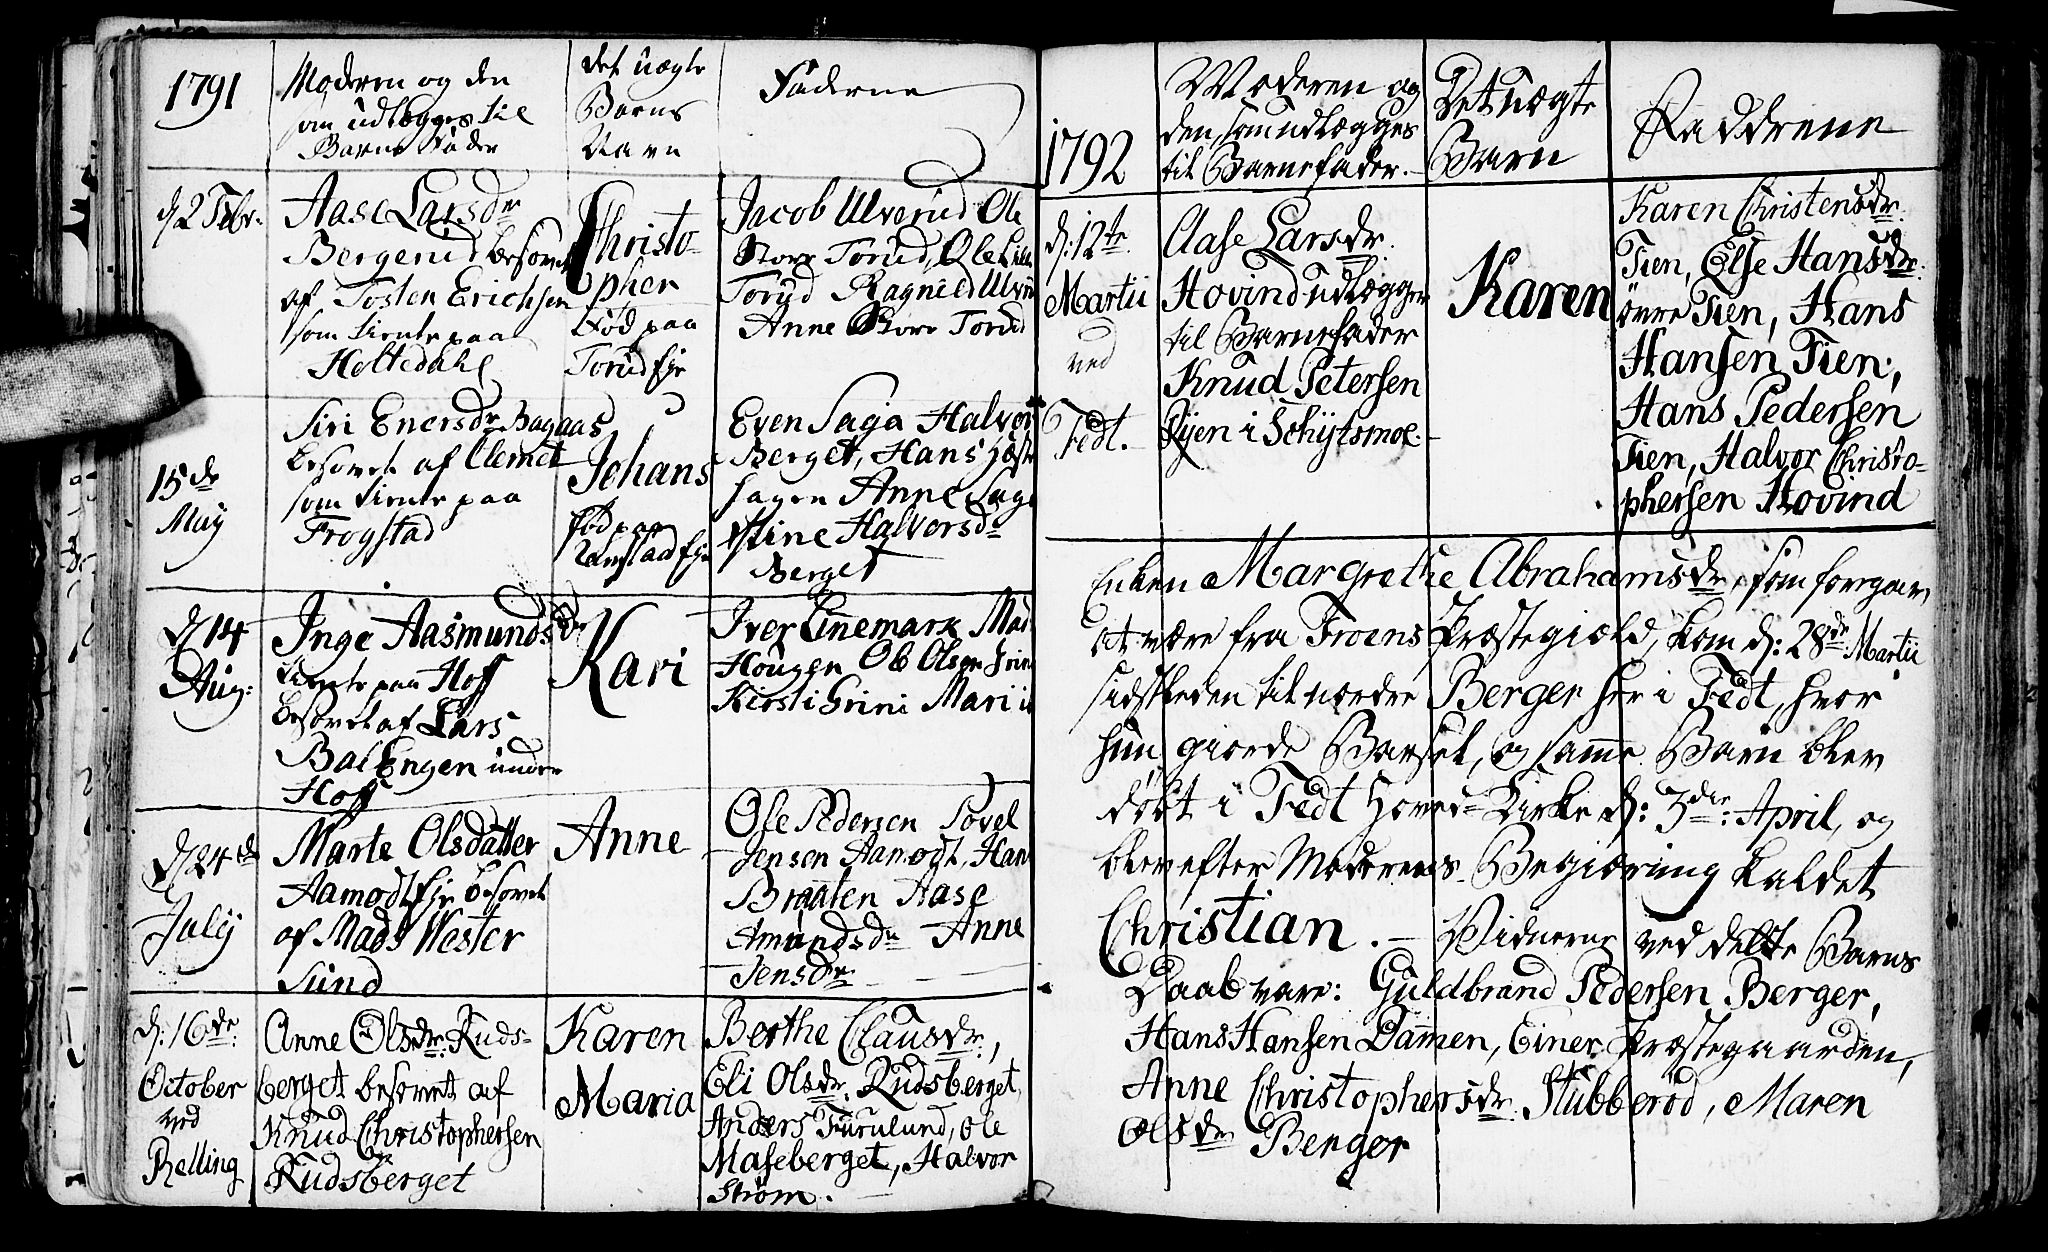 1791
Moderen og den
som udlægges til
Barne Fader
det uægte
Barns
Navn
Fadderne
d 2 Febr.
Aase Larsdr
Bergerud besovet
af Tosten Erichsen
som tiente paa
Holtedahl
Christo-
pher
Fød paa
Torud
Jacob Ulverud Ole
Store Torud, Ole Lille
Torud Ragnild Ulve
Anne Store Torud
15de
May
Siri Enersdr Bagaas
besovet af Clemet
som tiente paa
Frogstad
Johans
fød paa
Even Saga Halvor
Berget, Hans
hagen Anne Saga
Stine Halvorsdr
Berget
d 14
Aug:
Inge Aasmundsdr
tiente paa Hoff
besovet af Lars
BalEngen under
Hoff
Kari
Iver Linemark Mad
Hougen Ole Olsen Grini
Kirsti Grini Mari
d 24de
July
Marte Olsdatter
Aamodt besovet
af Mads Wester
Sund
Anne
Ole Pedersen Povel
Jensen Aamodt, Han
Braaten Aase
Amundsdr Anne
Jensdr
d: 16de
October
ved
Relling
Anne Olsdr: Ruds-
berget besovet af
Knud Christophersen
Rudsberget
Karen
Maria
Berthe Clausdr:,
Eli Olsdr. Rudsberget,
Anders Furulund, Ole
Maseberget, Halvor
Strøm.
1792
Moderen og
den, som udlægges
til Barnefader.
Det uægte
Barn
Faddrene
d: 12te
Martii
ved
Fedt.
Aase Larsdr.
Hovind udlægger
til Barnefader
Knud Petersen
Ryen i Schytsmoe.
Karen
Karen Christensdr.
Tien, Else Hansdr:
övre Tien, Hans
Hansen Tien,
Hans Pedersen
Tien, Halvor Christo-
phersen Hovind
Enken Margrethe Abrahamsdr, som foregav,
at være fra Froens Præstegield, kom d: 28de Martii
sidstleden til nordre Berger her i Fedt, hvor
hun giorde Barsel, og samme Barn blev
døbt i Fedt Hoved-Kirke d: 3die April, og
blev efter Moderens Begiæring kaldet
Christian. - Vidnerne ved dette Barns
Daab vare: Guldbrand Pedersen Berger,
Hans Hansen Dammen, Einer Præstegaarden,
Anne Christophersdr. Stubberöd, Maren
Olsdr Berger